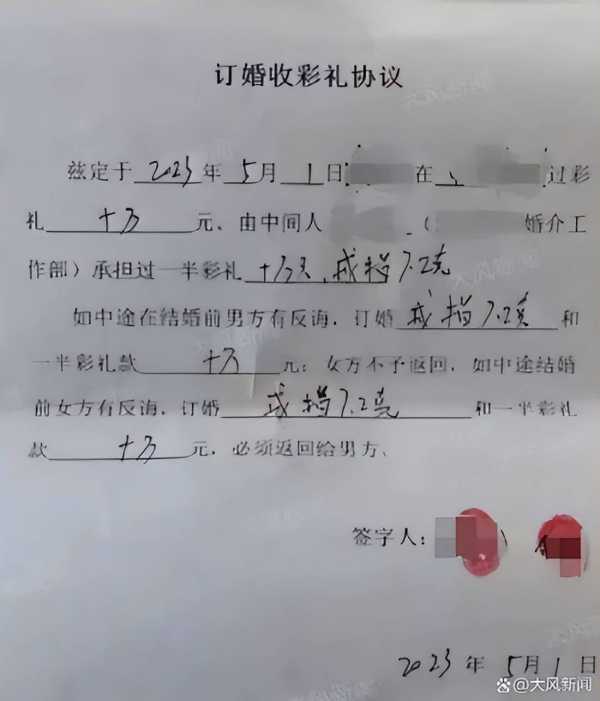 订婚收彩礼协议
兹定于2023年5月1日 在 过彩
礼十万元、由中间人 ( 婚介工
作部）承担过一半彩礼十万元、戒指7.2克
如中途在结婚前男方有反诲，订婚戒指7.2克和
一半彩礼款十万元；女方不予返回，如中途结婚
前女方有反诲，订婚戒指7.2克和一半彩礼
款十万元，必须返回给男方、
签字人：
2023年5月1日
大风新闻